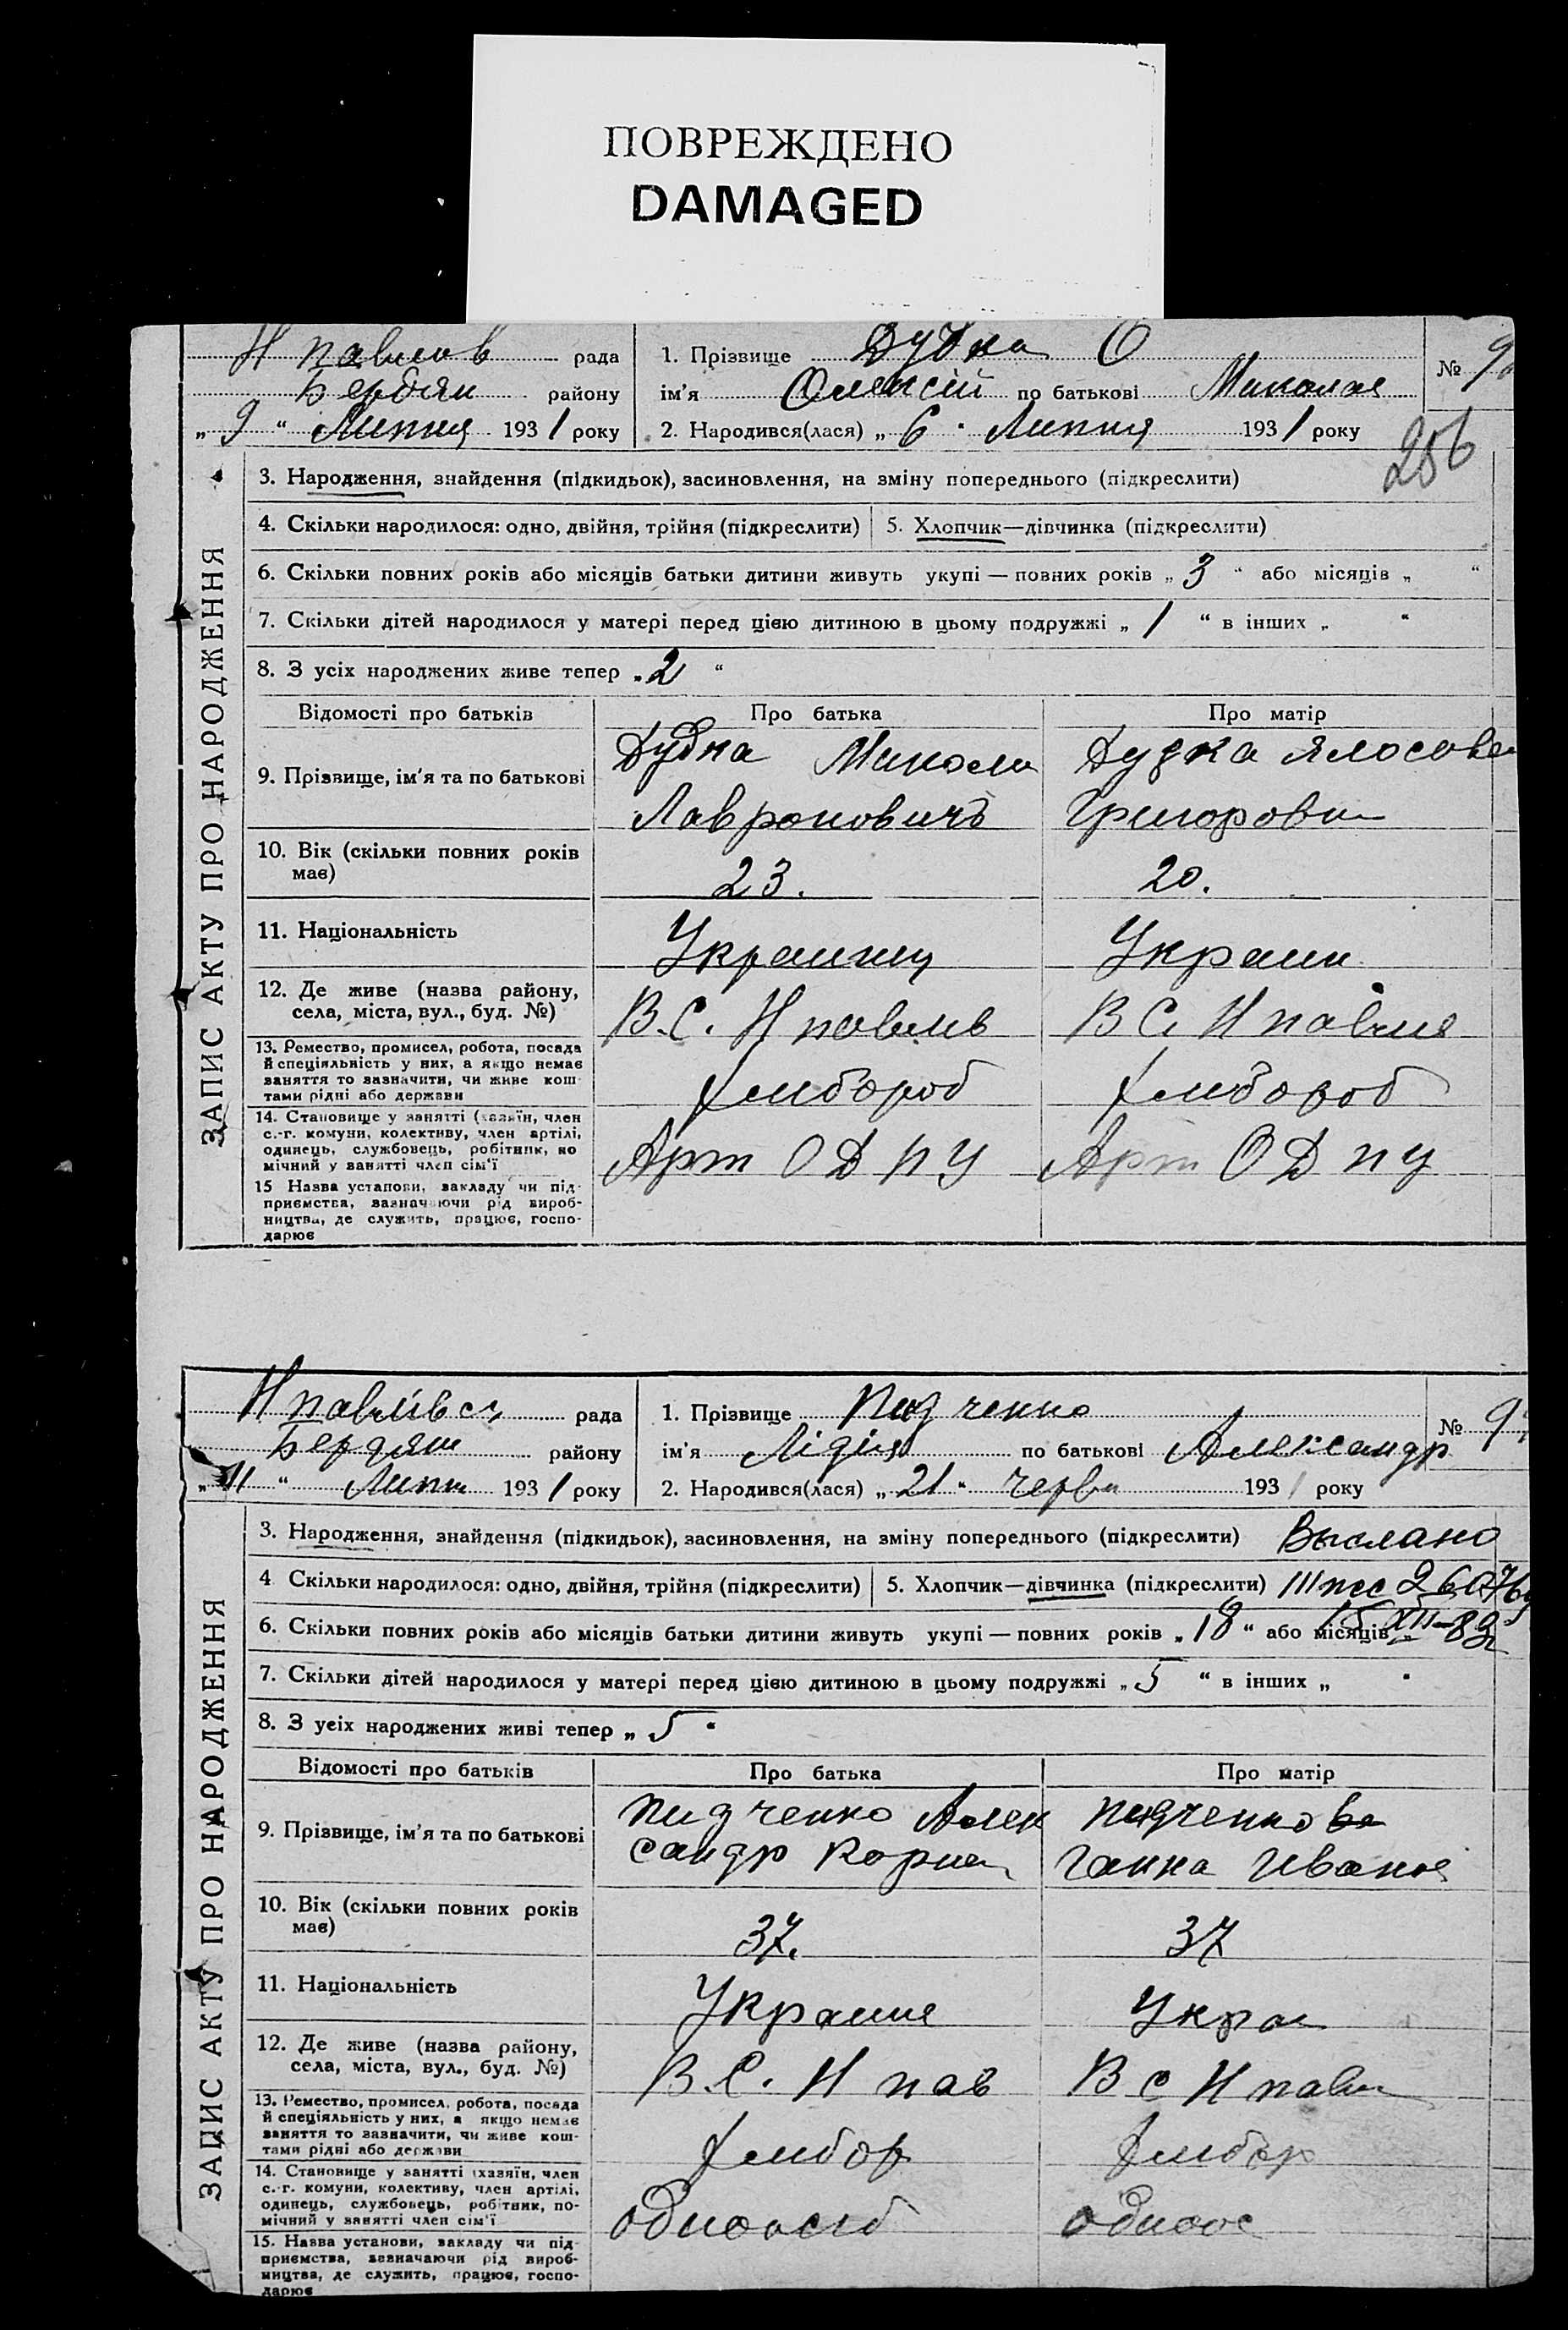 ПОВРЕЖДЕНО
DAMAGED
Н павлов рада
Бердян району
„ 9 “ Липня 1931 року
1. Прізвище Дудка О
ім'я Олексій по батькові Миколая
2. Народився(лася) „ 6 “ Липня 1931 року
№ 9
256
ЗАПИС АКТУ ПРО НАРОДЖЕННЯ
3. Народження, знайдення (підкидьок), засиновлення, на зміну попереднього (підкреслити)
4. Скільки народилося: одно, двійня, трійня (підкреслити) 5. Хлопчик—дівчинка (підкреслити)
6. Скільки повних років або місяців батьки дитини живуть укупі — повних років „ 3 “ або місяців „ “
7. Скільки дітей народилося у матері перед цією дитиною в цьому подружжі „ 1 “ в інших „ “
8. З усіх народжених живе тепер „ 2 “
Відомості про батьків Про батька Про матір
9. Прізвище, ім'я та по батькові
Дудка Миколи
Лавроновичъ
Дудка
Григорови
10. Вік (скільки повних років
має)
23. 20.
11. Національність Украинец Украин
12. Де живе (назва району,
села, міста, вул., буд. №)
В.С. Н павлив В С. Н павлив
13. Ремество, промисел, робота, посада
й спеціяльність у них, а якщо немає
заняття то зазначити, чи живе кош-
тами рідні або держави
хлибороб хлибороб
14. Становище у занятті (хазяїн, член
с.-г. комуни, колективу, член артілі,
одинець, службовець, робітник, по
мічний у занятті член сім'ї
Арт ОДПУ Арт ОДПУ
15 Назва установи, закладу чи під-
приємства, зазначаючи рід вироб-
ництва, де служить, працює, госпо-
дарює
Н павлівсь рада
Бердян району
„ 11 “ Липн 1931 року
1. Прізвище Пидченко
ім'я Лідія по батькові Александр
2. Народився(лася) „ 21 “ черви 193 року
№ 9
ЗАПИС АКТУ ПРО НАРОДЖЕННЯ
3. Народження, знайдення (підкидьок), засиновлення, на зміну попереднього (підкреслити) Выслано
4 Скільки народилося: одно, двійня, трійня (підкреслити) 5. Хлопчик—дівчинка (підкреслити)
6. Скільки повних років або місяців батьки дитини живуть укупі — повних років „ 18 “ або місяців „ 15 XII-83г
7. Скільки дітей народилося у матері перед цією дитиною в цьому подружжі „ 5 “ в інших „ “
8. З усіх народжених живі тепер „ 5 “
Відомості про батьків Про батька Про матір
9. Прізвище, ім'я та по батькові
Пидченко Алек
сандр Корне
Пидченково
Ганна Иванов
10. Вік (скільки повних років
має)
37. 37
11. Національність Украине Украи
12. Де живе (назва району,
села, міста, вул., буд. №)
В.С. Н пав В с Н павл
13. Ремество, промисел, робота, посада
й спеціяльність у них, а якщо немає
заняття то зазначити, чи живе кош-
тами рідні або держави
хлибор хлибор
14. Становище у занятті (хазяїн, член
с.-г. комуни, колективу, член артілі,
одинець, службовець, робітник, по-
мічний у занятті член сім'ї
одноосіб одноос
15. Назва установи, закладу чи під-
приємства, зазначаючи рід вироб-
ництва, де служить, працює, госпо-
дарює